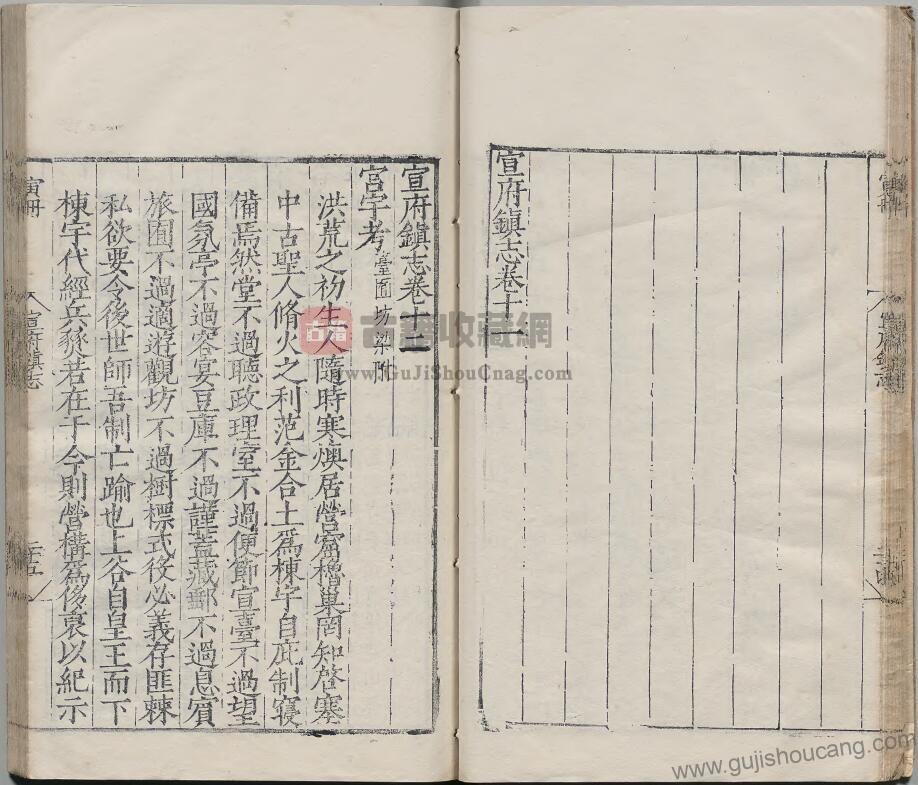 宣府鎮志卷十一
宣府鎮志卷十二
宮宇考 臺囿坊梁附
洪荒之初生人隨時寒燠居營窟橧巢罔知啓塞
中古聖人脩火之利范金合土爲棟宇自庇制寖
備焉然堂不過聽政理室不過便節宣臺不過望
國氛亭不過容宴豆庫不過謹蓋藏郵不過息賓
旅囿不過適遊觀坊不過樹標式役必義存匪棘
私欲要令後世師吾制亡踰也上谷自皇王而下
棟宇代經兵燹若在于今則營構爲侈裒以紀示
寅册
宣府鎮志
二十五
古籍收藏網
www.GuJiShouCnag.com
www.gujishoucang.com